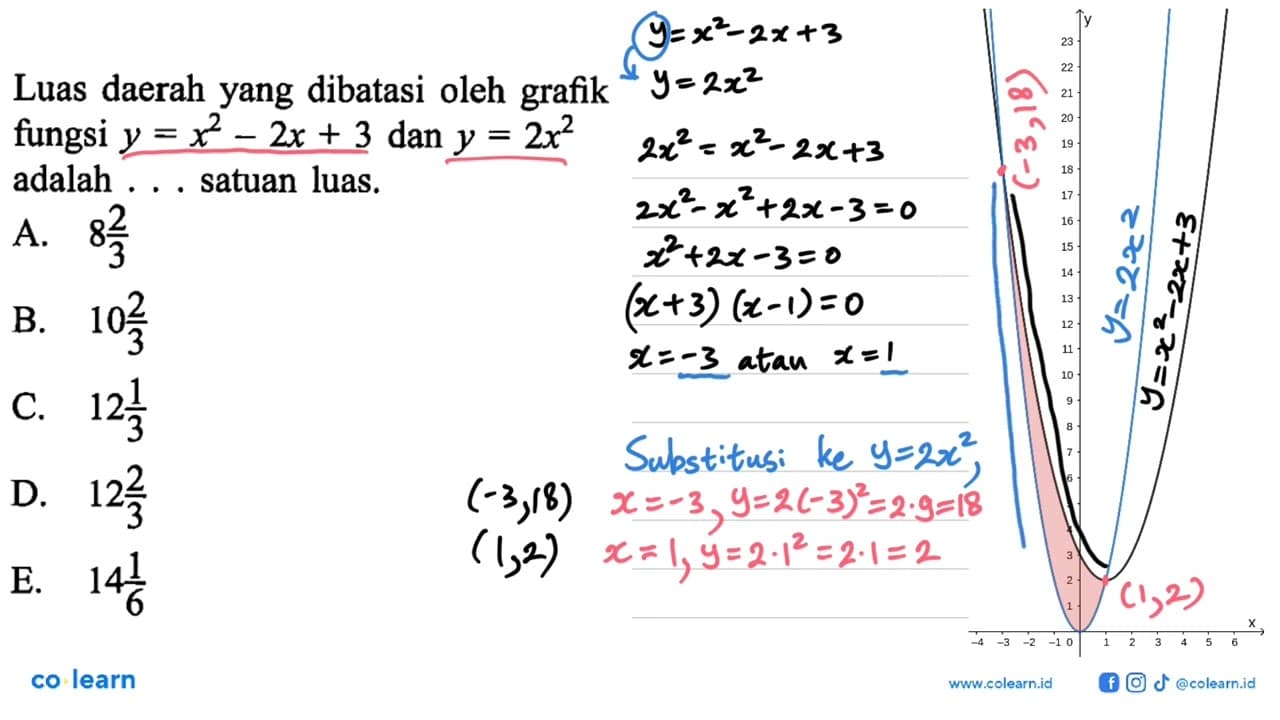 Luas daerah yang dibatasi oleh grafik
fungsi y = x² − 2x + 3 dan y = 2x²
adalah . . . satuan luas.
A. 8 2/3
B. 10 2/3
C. 12 1/3
D. 12 2/3
E. 14 1/6
y = x² − 2x + 3
y = 2x²
2x² = x² − 2x + 3
2x² − x² + 2x − 3 = 0
x² + 2x − 3 = 0
(x+3) (x−1) = 0
x = −3 atau x = 1
Substitusi ke y = 2x²,
(−3,18) x = −3, y = 2(−3)² = 2·9 = 18
(1,2) x = 1, y = 2·1² = 2·1 = 2
y
23
22
21
20
19
18
17
16
15
14
13
12
11
10
9
8
7
6
4
3
2
1
−4 −3 −2 −1 0 1 2 3 4 5 6
x
(−3,18)
y = 2x²
y = x² − 2x + 3
(1,2)
co learn
www.colearn.id
@colearn.id